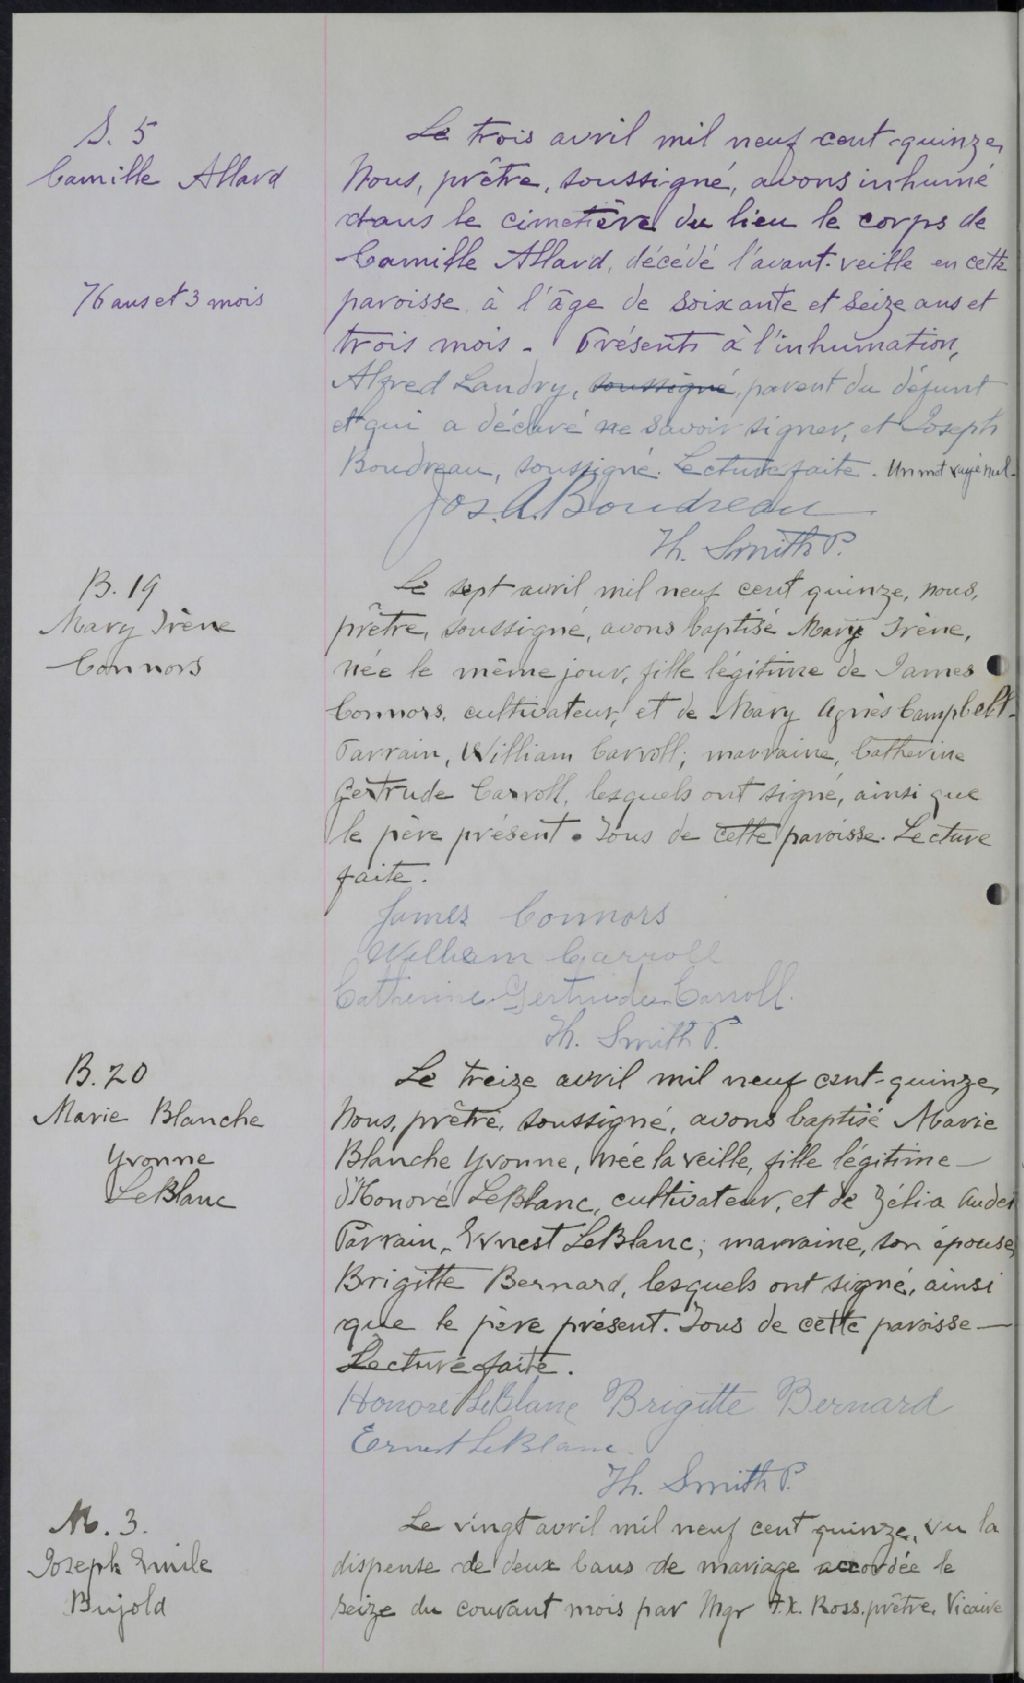 S. 5
Camille Allard
76 ans et 3 mois
Le trois avril mil neuf cent-quinze,
Nous, prêtre, soussigné, avons inhumé
dans le cimetière du lieu le corps de
Camille Allard, décédé l'avant-veille en cette
paroisse à l'âge de soixante et seize ans et
trois mois. Présents à l'inhumation,
Alfred Landry, soussigné, parent du défunt
et qui a déclaré ne savoir signer, et Joseph
Boudreau, soussigné. Lecture faite. Un mot rayé nul.
Jos. A. Boudreau
Th. Smith P.
B. 19
Mary Irène
Connors
Le sept avril mil neuf cent quinze, nous,
prêtre, soussigné, avons baptisé Mary Irène,
née le même jour, fille légitime de James
Connors, cultivateur, et de Mary Agnès Campbell.
Parrain, William Carroll; marraine, Catherine
Gertrude Carroll, lesquels ont signé, ainsi que
le père présent. Tous de cette paroisse. Lecture
faite.
James Connors
William Carroll
Catherine Gertrude Carroll.
Th. Smith P.
B. 20
Marie Blanche
Yvonne
LeBlanc
Le treize avril mil neuf cent-quinze,
Nous, prêtre, soussigné, avons baptisé Marie
Blanche Yvonne, née la veille, fille légitime
d'Honoré LeBlanc, cultivateur, et de Zélia
Parrain, Ernest LeBlanc; marraine, son épouse,
Brigitte Bernard, lesquels ont signé, ainsi
que le père présent. Tous de cette paroisse—
Lecture faite.
Honoré LeBlanc Brigitte Bernard
Ernest LeBlanc.
Th. Smith P.
M. 3.
Joseph Emile
Bujold
Le vingt avril mil neuf cent quinze, vu la
dispense de deux bans de mariage accordée le
seize du courant mois par Mgr F.X. Ross, prêtre, Vicaire